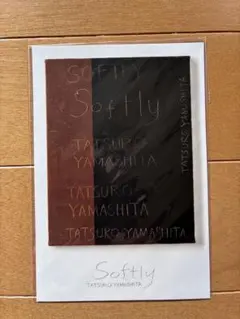 SOFTLY
Softly
TATSURO
YAMASHITA
TATSURO
YAMASHITA
TATSURO YAMASHITA
TATSURO YAMASHITA
Softly
TATSURO YAMASHITA